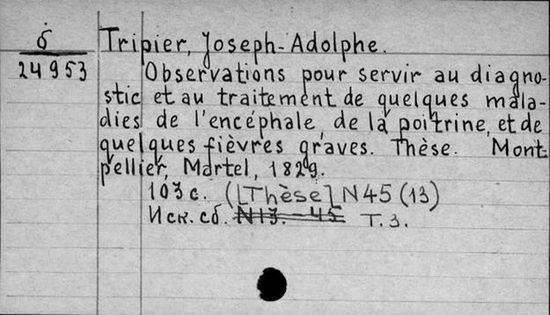 б Tripier, Joseph-Adolphe.
24953 Observations pour servir au diagno-
stic et au traitement de quelques mala-
dies de l'encéphale, de la poitrine, et de
quelques fièvres graves. Thèse. Mont-
pellier, Martel, 1829.
103 с. ([Thèse] N45 (13)
Иск. сб. N13. - 45 Т.3.